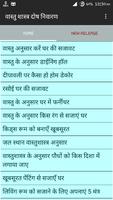 वास्तु शास्त्र दोष निवारण
HOME
NEW RELEASE
वास्तु अनुसार करें घर की सजावट
वास्तु के अनुसार डाइनिंग हॉल
दीपावली पर कैसी हो होम डेकोर
रसोई घर की सजावट
वास्तु के अनुसार घर में फर्नीचर
वास्तु अनुसार किस रंग से सजाएं घर
किड्स रूम को बनाएँ खूबसूरत
जल स्थान वास्तुशास्त्र अनुसार
वास्तुशास्त्र के अनुसार पौधों को किस दिशा में लगाया जाए
खूबसूरत पेंटिंग से सजाएँ घर
लिविंग रूम को संवारने के लिए अपनाएं 5 मंत्र